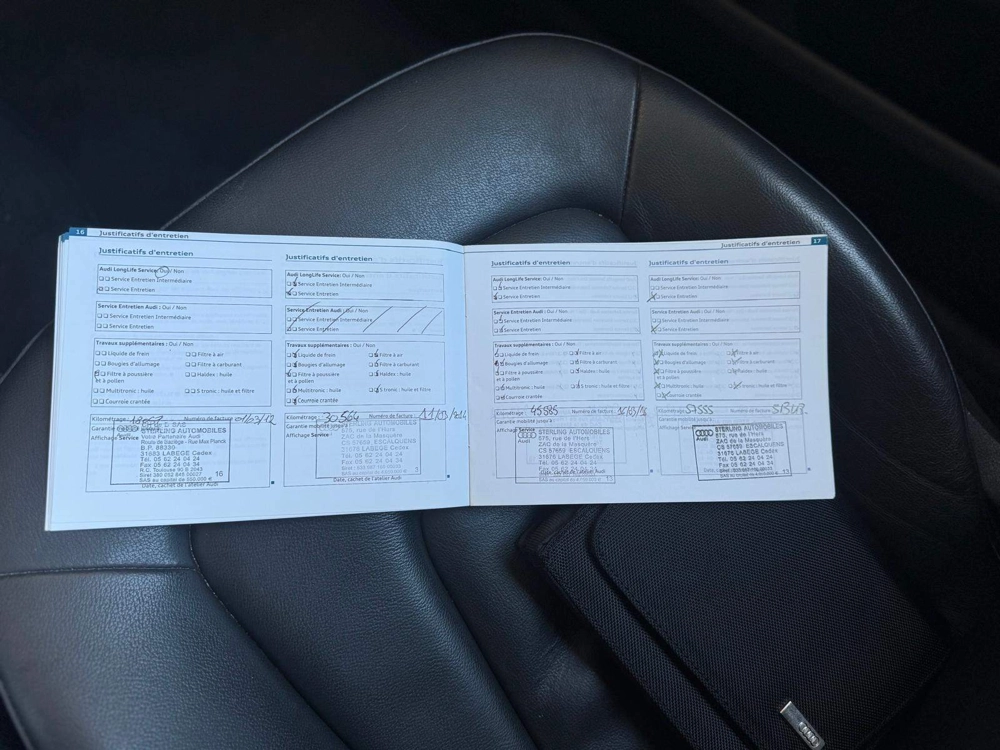 16 Justificatifs d'entretien
Justificatifs d'entretien
Audi LongLife Service: Oui / Non
Service Entretien Intermédiaire
Service Entretien
Service Entretien Audi : Oui / Non
Service Entretien Intermédiaire
Service Entretien
Travaux supplémentaires : Oui / Non
Liquide de frein Filtre à air
Bougies d'allumage Filtre à carburant
Filtre à poussière Haldex : huile
et à pollen
Multitronic : huile S tronic : huile et filtre
Courroie crantée
Kilométrage : Numéro de facture
Garantie
Affichage Service
STERLING AUTOMOBILES
Votre Partenaire Audi
B.P. 88320
31683 LABEGE Cedex
Tél. 05 62 24 04 24
Fax 05 62 24 04 34
16
Date, cachet de l'atelier Audi
Justificatifs d'entretien
Audi LongLife Service: Oui / Non
Service Entretien Intermédiaire
Service Entretien
Service Entretien Audi : Oui / Non
Service Entretien Intermédiaire
Service Entretien
Travaux supplémentaires : Oui / Non
Liquide de frein Filtre à air
Bougies d'allumage Filtre à carburant
Filtre à poussière Haldex : huile
et à pollen
Multitronic : huile S tronic : huile et filtre
Courroie crantée
Kilométrage : 30564 Numéro de facture
Garantie mobilité jusqu'à
Affichage Service :
STERLING AUTOMOBILES
575, rue de l'Hers
ZAC de la Masquère
CS 57659 ESCALQUENS
31676 LABEGE Cedex
Tél. 05 62 24 04 24
Fax 05 62 24 04 34
Date, cachet de l'atelier Audi
Justificatifs d'entretien 17
Justificatifs d'entretien
Audi LongLife Service: Oui / Non
Service Entretien Intermédiaire
Service Entretien
Service Entretien Audi : Oui / Non
Service Entretien Intermédiaire
Service Entretien
Travaux supplémentaires : Oui / Non
Liquide de frein Filtre à air
Bougies d'allumage Filtre à carburant
Filtre à poussière Haldex : huile
et à pollen
Multitronic : huile S tronic : huile et filtre
Courroie crantée
Kilométrage : 45985 Numéro de facture
Garantie mobilité jusqu'à
Affichage Service
STERLING AUTOMOBILES
575, rue de l'Hers
ZAC de la Masquère
CS 57659 ESCALQUENS
31676 LABEGE Cedex
Tél. 05 62 24 04 24
13
Justificatifs d'entretien
Audi LongLife Service: Oui / Non
Service Entretien Intermédiaire
Service Entretien
Service Entretien Audi : Oui / Non
Service Entretien Intermédiaire
Service Entretien
Travaux supplémentaires : Oui / Non
Liquide de frein Filtre à air
Bougies d'allumage Filtre à carburant
Filtre à poussière Haldex : huile
et à pollen
Multitronic : huile S tronic : huile et filtre
Courroie crantée
Kilométrage : 57555 Numéro de facture
Garantie mobilité jusqu'à
Affichage Service
Audi
STERLING AUTOMOBILES
575, rue de l'Hers
ZAC de la Masquère
CS 57659 ESCALQUENS
31676 LABEGE Cedex
Tél. 05 62 24 04 24
Fax 05 62 24 04 34
13